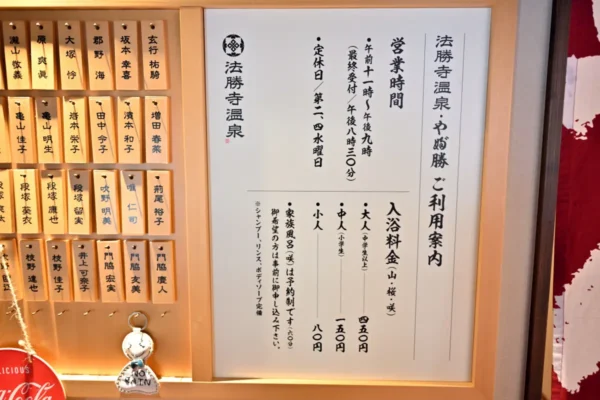 法勝寺温泉・やど勝 ご利用案内
営業時間
・午前十一時〜午後九時
（最終受付／午後八時三〇分）
・定休日／第二、四水曜日
法勝寺温泉
入浴料金（山・桜・咲）
・大人（中学生以上） 四五〇円
・中人（小学生） 一五〇円
・小人 八〇円
・家族風呂（咲）は予約制です（六〇分）
御希望の方は事前に御申し込み下さい。
※シャンプー、リンス、ボディソープ完備
玄行 祐勝
坂本 幸喜
郡野 海
大塚 怜
原 爽眞
増田 春菜
濱本 和子
田中 今子
岩本 栄子
亀山 明生
亀山 佳子
前尾 裕子
仁司
吹野 明美
段塚 留実
段塚 庸也
段塚 葵衣
門脇 慶人
門脇 友美
門脇 宏実
井上 可奈子
枝野 佳子
枝野 達也
DELICIOUS
Coca-Cola
NO RAIN